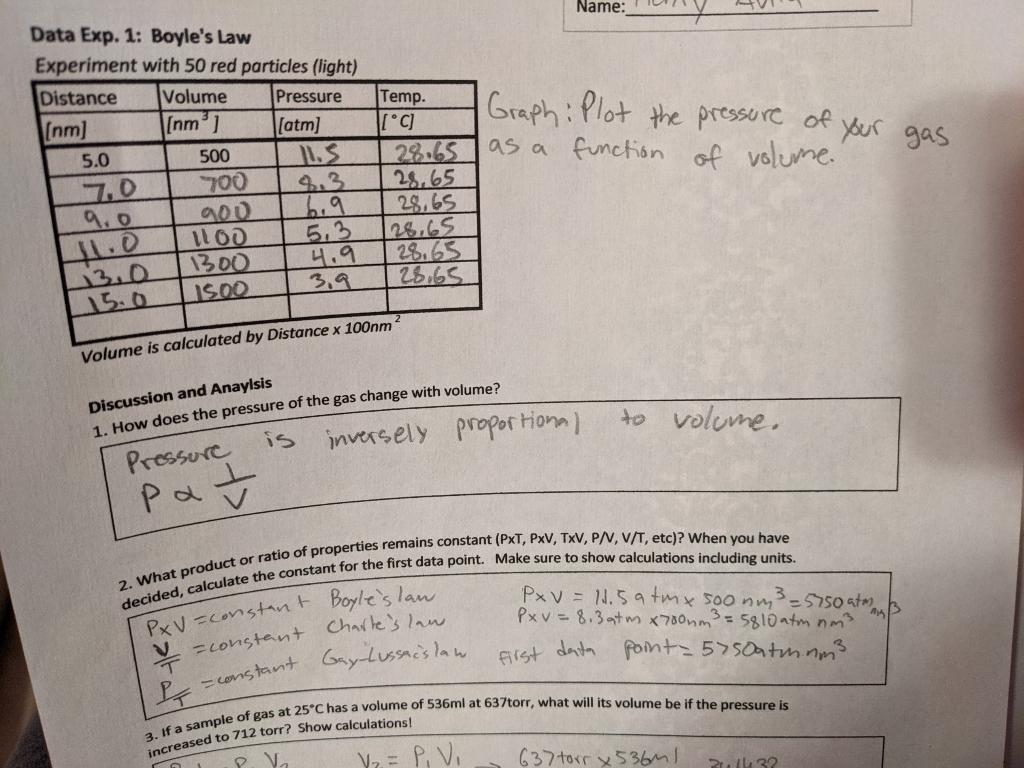 Name:
Data Exp. 1: Boyle's Law
Experiment with 50 red particles (light)
Distance Volume Pressure Temp.
[nm] [nm³] [atm] [°C]
5.0 500 11.5 28.65
7.0 700 8.3 28.65
9.0 900 6.9 28.65
11.0 1100 5.3 28.65
13.0 1300 4.9 28.65
15.0 1500 3.9 28.65
Volume is calculated by Distance x 100nm²
Graph: Plot the pressure of your gas
as a function of volume.
Discussion and Anaylsis
1. How does the pressure of the gas change with volume?
Pressure is inversely proportional to volume.
P α 1/V
2. What product or ratio of properties remains constant (PxT, PxV, TxV, P/V, V/T, etc)? When you have
decided, calculate the constant for the first data point. Make sure to show calculations including units.
PxV = constant Boyle's law
V/T = constant Charle's law
P/T = constant Gay-Lussac's law
PxV = 11.5 atm x 500 nm³ = 5750 atm nm³
PxV = 8.3 atm x 700nm³ = 5810 atm nm³
First data point = 5750 atm nm³
3. If a sample of gas at 25°C has a volume of 536ml at 637torr, what will its volume be if the pressure is
increased to 712 torr? Show calculations!
V₂ = P₁V₁ 637torr x 536ml